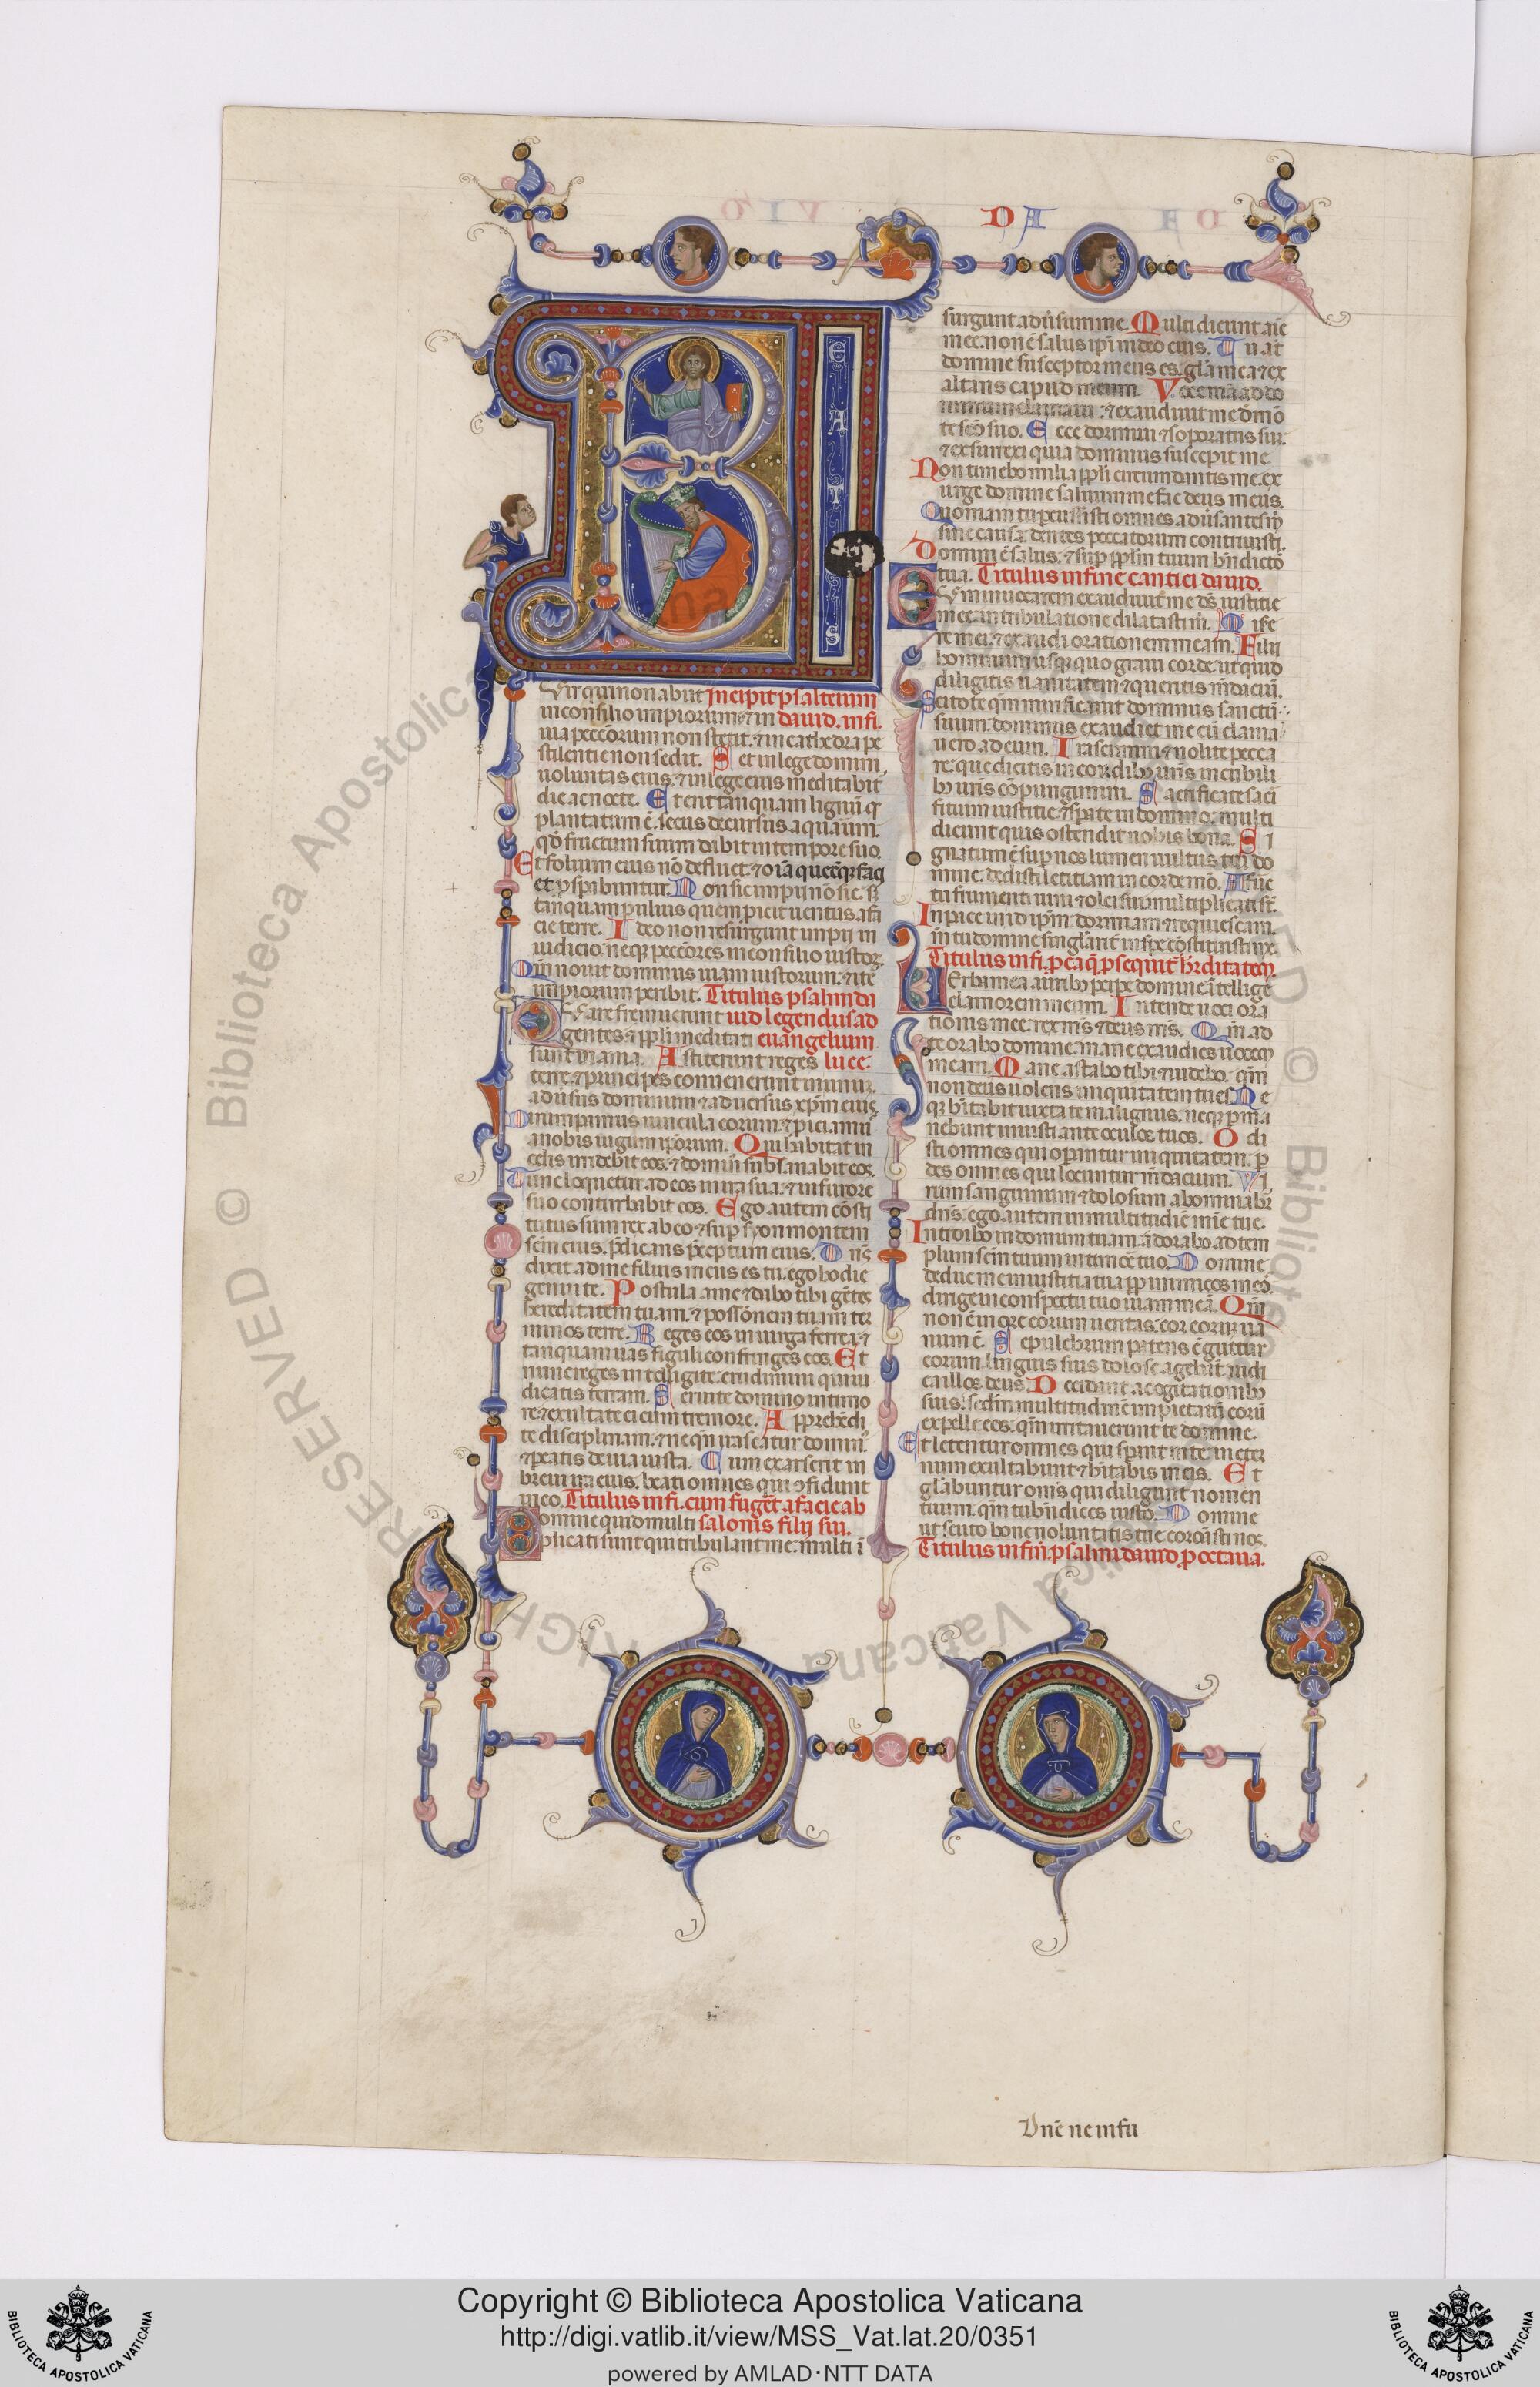 DA
B
EATUS
Vir qui non abiit Incipit psalterium
in consilio impiorum ⁊ in dauid. infi.
uia peccōrum non stetit. ⁊ in cathedra pe
stilentie non sedit. Set in lege domini
uoluntas eius. ⁊ in lege eius meditabit̄
die ac nocte. Et erit tanquam lignū qđ
plantatum ē. secus decursus aquarum.
qđ fructum suum dabit in tempore suo.
Et folium eius nō defluet. ⁊ oīa quecūq; faci
et ꝓsperabuntur. Non sic impii nō sic. sȝ
tanquam puluis quem proicit uentus a fa
cie terre. Ideo non resurgunt impij in
iudicio. neq; peccōres in consilio iustorȝ.
Qm̄ nouit dominus uiam iustorum. ⁊ iter
impiorum peribit. Titulus psalm̄ da
Quare fremuerunt uid legendus ad
gentes. ⁊ ppl̄i meditati euangelium
sunt inania. Astiterunt reges luce.
terre. ⁊ principes conuenerunt in unum.
aduersus dominum ⁊ aduersus xp̄m eius.
Dirumpamus uincula eorum. ⁊ proiciamus
a nobis iugum ip̄orum. Qui habitat in
celis irridebit eos. ⁊ dominus subsannabit eos.
Tunc loquetur ad eos in ira sua. ⁊ in furore
suo conturbabit eos. Ego autem cōsti
tutus sum rex ab eo ⁊ sup syon montem
scm̄ eius. p̄dicans p̄ceptum eius. Dn̄s
dixit ad me filius meus es tu. ego hodie
genui te. Postula a me ⁊ dabo tibi gētes
hereditatem tuam. ⁊ possōnem tuam ter
minos terre. Reges eos in uirga ferrea. ⁊
tanquam uas figuli confringes eos. Et
nunc reges intelligite. erudimini qui iu
dicatis terram. Seruite domino in timo
re. ⁊ exultate ei cum tremore. Apprehēdi
te disciplinam. ⁊ ne qn̄ irascatur dominus
⁊ pereatis de uia iusta. Cum exarserit in
breui ira eius. beati omnes qui ꝯfidunt
in eo. Titulus infi. cum fugeret a facie ab
Domine quid multi salonis filij sui.
plicati sunt qui tribulant me. multi ī
surgunt aduersum me. Multi dicunt aīe
mee. non ē salus ipi in deo eius. Tu aut̄
domine susceptor meus es. gl̄a mea ⁊ ex
altans capud meum. Voce mea ad do
minum clamaui. ⁊ exaudiuit me de mō
te scō suo. Ego dormiui ⁊ soporatus sum.
⁊ exsurrexi quia dominus suscepit me.
Non timebo milia ppl̄i circumdantis me. ex
urge domine saluum me fac deus meus.
Quoniam tu percussisti omnes aduersantes m̄
sine causa. dentes peccatorum contriuisti.
Domini ē salus. ⁊ sup ppl̄m tuum bn̄dictō
tua. Titulus in fine cantici dauid.
Cum inuocarem exaudiuit me ds̄ iustitie
mee. in tribulatione dilatasti m̄. Mise
rere mei. ⁊ exaudi orationem meam. Filii
hominum usq; quo graui corde. ut quid
diligitis uanitatem ⁊ queritis mēdaciū.
Scitote qm̄ mirificauit dominus sanctū
suum. dominus exaudiet me cū clama
uero ad eum. Irascimini ⁊ nolite pecca
re. que dicitis in cordibȝ ur̄is in cubili
bȝ ur̄is cōpungimini. Sacrificate sacri
ficium iustitie. ⁊ sperate in domino. multi
dicunt quis ostendit nobis bona. Si
gnatum ē sup nos lumen uultus tui do
mine. dedisti letitiam in corde m̄o. A fruc
tu frumenti uini ⁊ olei sui multiplicati st̄.
In pace in id ip̄m. dormiam ⁊ requiescam.
Qm̄ tu domine singlarit̄ in spe constituisti me.
Titulus infi. p ea q̄ ꝓsequit̄ h̄editatem.
Uerba mea auribȝ percipe domine ītellige
clamorem meum. Intende uoci ora
tionis mee. rex m̄s ⁊ deus m̄s. Qm̄ ad
te orabo domine. mane exaudies uocem
meam. Mane astabo tibi ⁊ uidebo. qm̄
non deus uolens iniquitatem tu es. Ne
q; habitabit iuxta te malignus. neq; perma
nebunt iniusti ante oculos tuos. Odi
sti omnes qui operantur iniquitatem. per
des omnes qui locuntur mēdacium. Vi
rum sanguinum ⁊ dolosum abominabit̄
dn̄s. ego autem in multitudine mīe tue.
Introibo in domum tuam. adorabo ad tem
plum scm̄ tuum in timore tuo. Domine
deduc me in iustitia tua. ppter inimicos meos
dirige in conspectu tuo uiam meā. Qm̄
non ē in ore eorum ueritas. cor eorum ua
num ē. Sepulchrum patens ē guttur
eorum. linguis suis dolose agebāt. iudi
ca illos deus. Decidant a cogitationibȝ
suis. sedm̄ multitudinē impietatū eorū
expelle eos. qm̄ irritauerunt te domine.
Et letentur omnes qui sperant in te. in eter
num exultabunt ⁊ habitabis in eis. Et
gl̄abuntur om̄s qui diligunt nomen
tuum. qm̄ tu bn̄dices iusto. Domine
ut scuto bone uoluntatis tue coronasti nos.
Titulus in fin̄. psalm̄ dauid. p octaua.
Dn̄e ne in fu
Copyright © Biblioteca Apostolica Vaticana
http://digi.vatlib.it/view/MSS_Vat.lat.20/0351
powered by AMLAD·NTT DATA
BIBLIOTECA APOSTOLICA VATICANA
BIBLIOTECA APOSTOLICA VATICANA